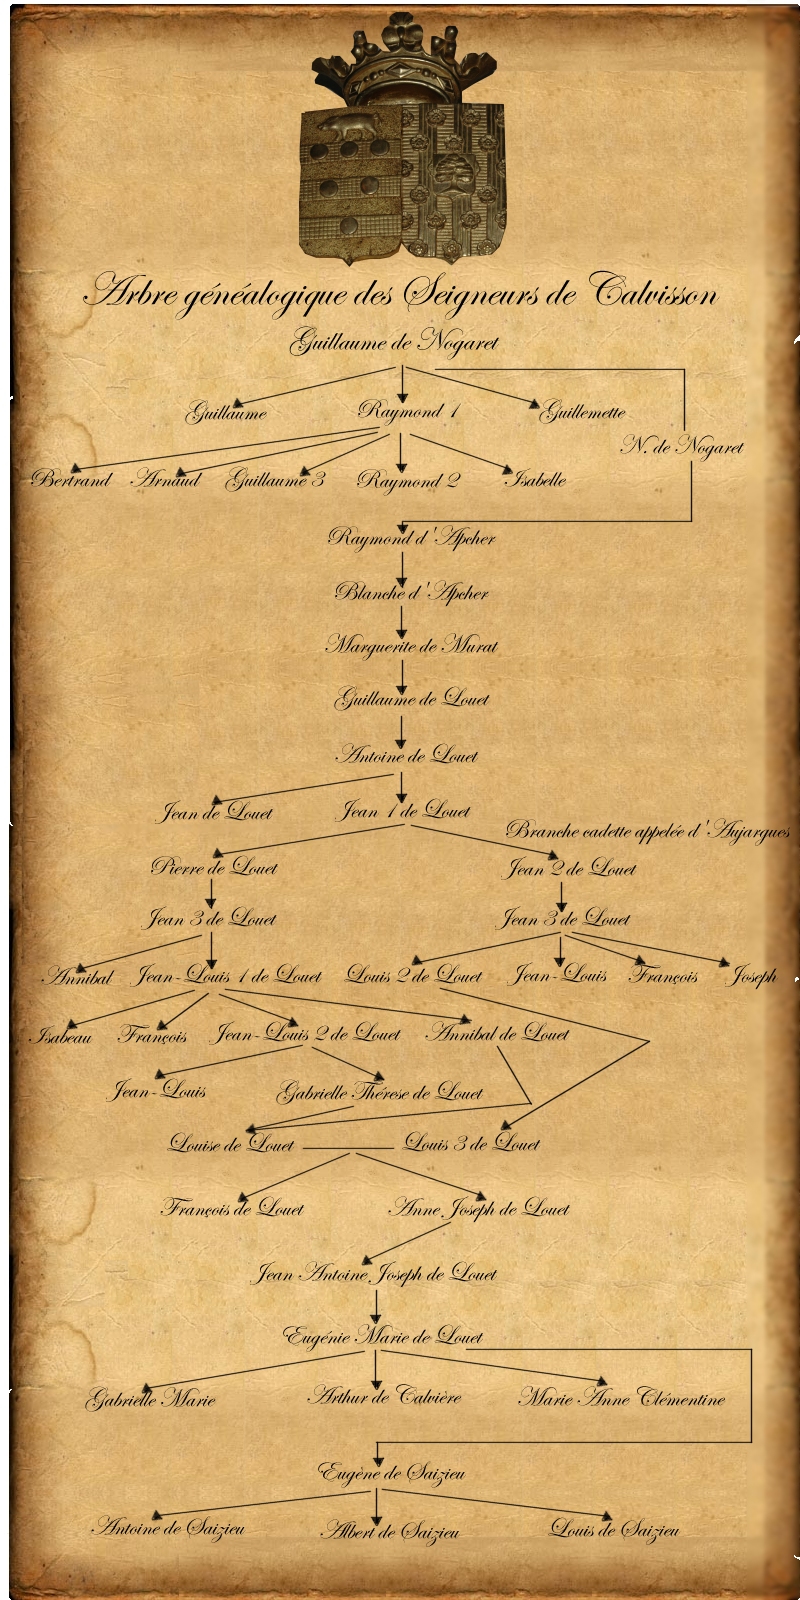 Arbre généalogique des Seigneurs de Calvisson
Guillaume de Nogaret
Guillaume Raymond 1 Guillemette
N. de Nogaret
Bertrand Arnaud Guillaume 3 Raymond 2 Isabelle
Raymond d'Apcher
Blanche d'Apcher
Marguerite de Murat
Guillaume de Louet
Antoine de Louet
Jean de Louet Jean 1 de Louet
Branche cadette appelée d'Aujargues
Pierre de Louet Jean 2 de Louet
Jean 3 de Louet Jean 3 de Louet
Annibal Jean-Louis 1 de Louet Louis 2 de Louet Jean-Louis François Joseph
Isabeau François Jean-Louis 2 de Louet Annibal de Louet
Jean-Louis Gabrielle Thérese de Louet
Louise de Louet Louis 3 de Louet
François de Louet Anne Joseph de Louet
Jean Antoine Joseph de Louet
Eugénie Marie de Louet
Gabrielle Marie Arthur de Calvière Marie Anne Clémentine
Eugène de Saizieu
Antoine de Saizieu Albert de Saizieu Louis de Saizieu